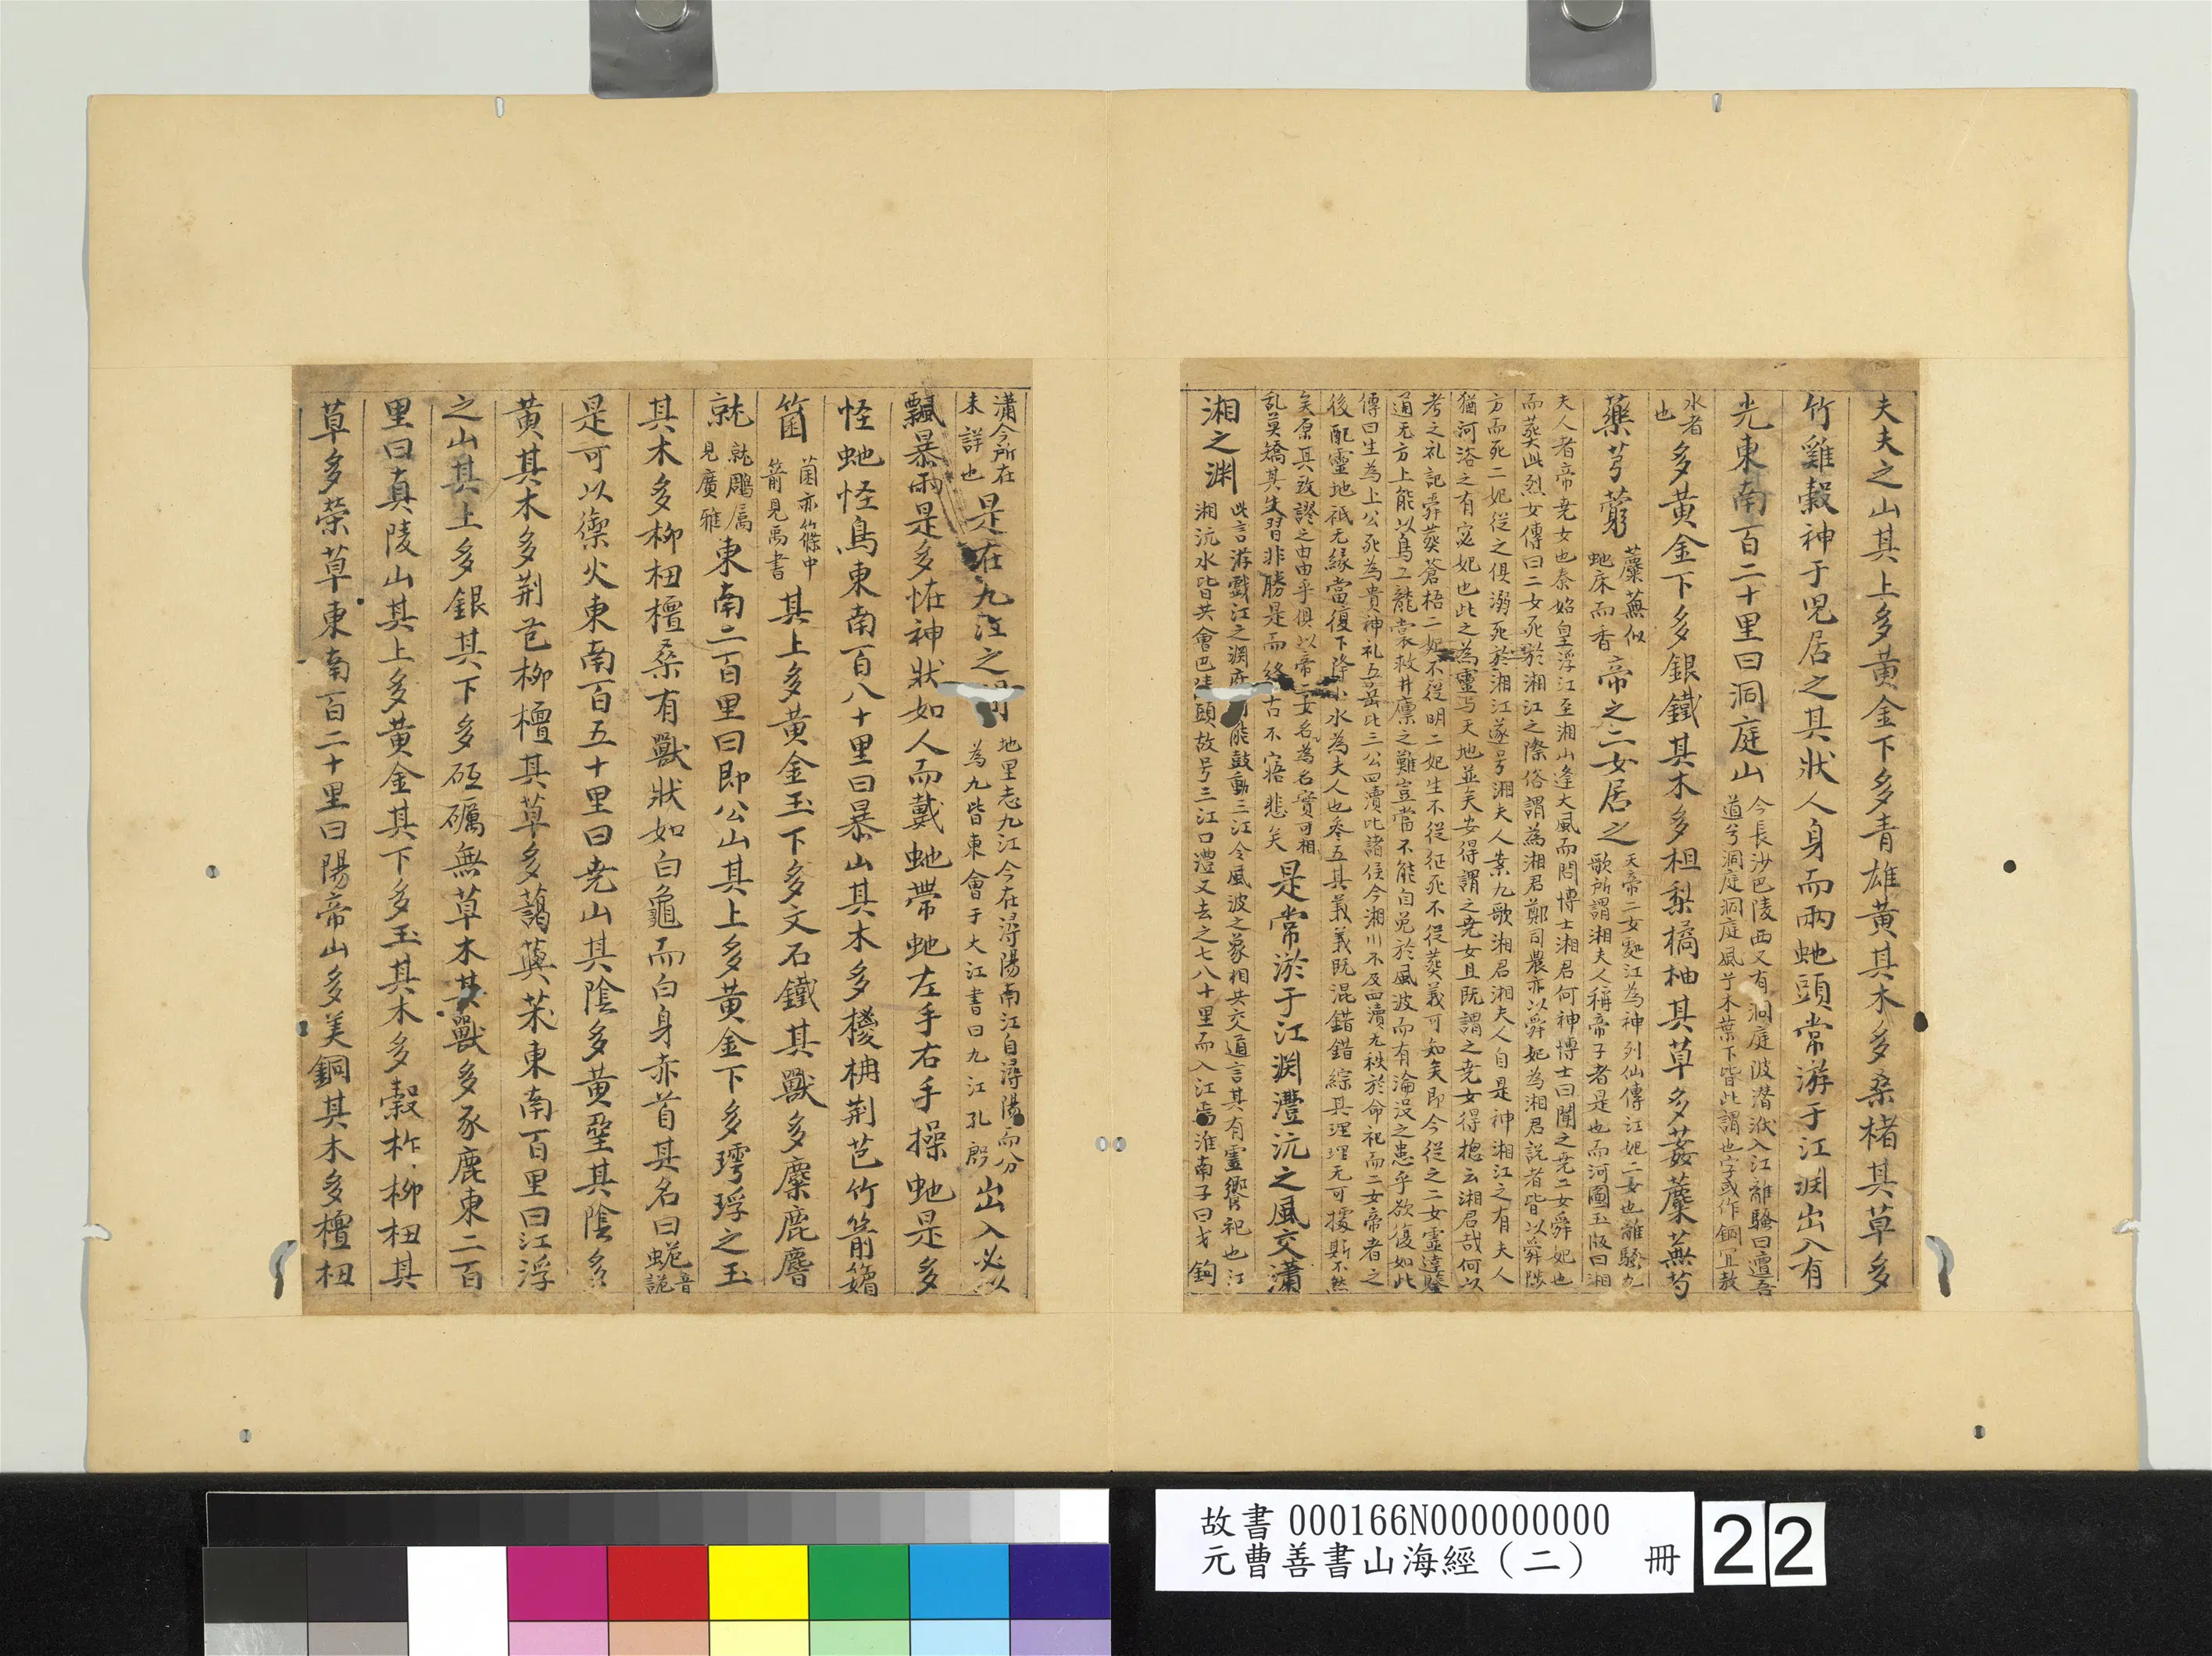 夫夫之山其上多黄金下多青雄黄其木多桑楮其草多
竹雞穀神于兒居之其狀人身而兩虵頭常游于江渕出入有
光東南百二十里曰洞庭山
今長沙巴陵西又有洞庭陂潜洑入江離騷曰邅吾
道兮洞庭洞庭風兮木葉下皆此謂也字或作銅冝敖
水者
也
多黄金下多銀鐵其木多柤梨橘柚其草多葌蘪蕪芍
藥芎藭
蘪蕪似
虵床而香
帝之二女居之
天帝二女處江為神列仙傳江妃二女也離騷九
歌所謂湘夫人稱帝子者是也而河圖玉版曰湘
夫人者帝尭女也秦始皇浮江至湘山逢大風而問博士湘君何神博士曰聞之尭二女舜妃也
而葬此烈女傳曰二女死於湘江之際俗謂為湘君鄭司農亦以舜妃為湘君説者皆以舜陟
方而死二妃從之俱溺死於湘江遂号湘夫人案九歌湘君湘夫人自是神湘江之有夫人
猶河洛之有宓妃也此之為靈与天地並矣安得謂之尭女且既謂之尭女得揔云湘君哉何以
考之礼記舜葬蒼梧二妃不從明二妃生不從征死不從葬義可知矣即令從之二女靈達鑒
通无方上能以鳥工龍裳救井廪之難豈當不能自免於風波而有淪没之患乎欲復如此
傳曰生為上公死為貴神礼五岳比三公四瀆比諸侯今湘川不及四瀆无秩於命祀而二女帝者之
後配靈地祇无緣當復下降小水為夫人也叅五其義義既混錯錯綜其理理无可據斯不然
矣原其致謬之由由乎俱以帝女名為名實可相
乱莫矯其失習非勝是而終古不寤悲矣
是常游于江渕澧沅之風交瀟
湘之渊
此言游戱江之渊府能鼓動三江令風波之氣相共交通言其有靈嚮祀也江
湘沅水皆共會巴陵頭故号三江口澧又去之七八十里而入江焉淮南子曰弋鈎
瀟今所在
未詳也
是在九江之間
地里志九江今在潯陽南江自潯陽而分
為九皆東會于大江書曰九江孔殷
出入必以
飄暴雨是多恠神狀如人而戴虵帶虵左手右手操虵是多
怪虵怪鳥東南百八十里曰暴山其木多椶枏荆芑竹箭䉋
箘
箘亦篠中
箭見禹書
其上多黄金玉下多文石鐵其獸多麋鹿麏
就
就鵰属
見廣雅
東南二百里曰即公山其上多黄金下多㻬琈之玉
其木多柳杻檀桑有獸狀如白龜而白身赤首其名曰蛫
音
詭
是可以禦火東南百五十里曰尭山其陰多黄堊其陰多
黄其木多荆芑柳檀其草多藷藇茱東南百里曰江浮
之山其上多銀其下多砥礪無草木其獸多豕鹿東二百
里曰真陵山其上多黄金其下多玉其木多穀柞柳杻其
草多榮草東南百二十里曰陽帝山多美銅其木多檀杻
故書 000166N000000000
元曹善書山海經（二） 冊 22